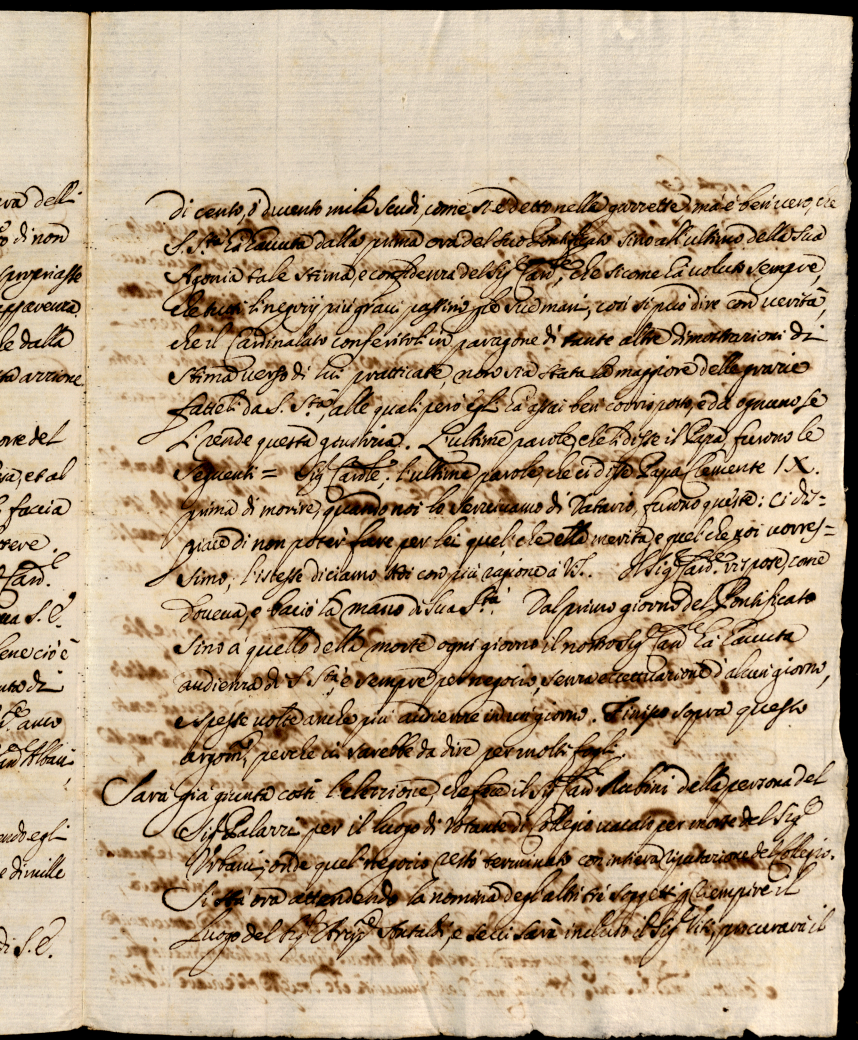 ora dell
di non
propriasse
le dalla
ta azzione
ore del
ra, et al
faccia
tere.
Card.e
ma S. E.
bene ciò è
anco
Albani
endo egli
e di mille
di S. E.
di cento, ò ducento mila scudi, come si è detto nelle gazzette; mà è ben vero, che
S. S.tà hà havuta dalla prima ora del suo Pontificato sino all'ultima della sua
Agonia tale stima, e confidenza del Sig.r Card.le, che sicome hà voluto sempre,
che tutti li negozij più gravi passino per sue mani, così si può dire con verità,
che il Cardinalato conferitoli in paragone di tante altre dimostrazioni di
stima verso di lui pratticate, non sia stata la maggiore delle grazie
fatteli da S. S.tà, alle quali però egli hà assai ben corrisposto, e da ognuno se
li rende questa giustizia. L'ultime parole, che li disse il Papa furono le
seguenti = Sig.r Card.le: l'ultime parole, che ci disse Papa Clemente IX.
prima di morire, quando noi lo servivamo di Datario, furono queste: ci dis=
piace di non poter fare per lei quel che ella merita, e quel che noi vorres=
simo; l'istesse diciamo Noi con più ragione à VS. Il Sig.r Card.le rispose, come
doveva, e baciò la mano di Sua S.tà. Dal primo giorno del Pontificato
sino à quello della morte ogni giorno il nostro Sig.r Card.le hà havuta
audienza di S. S.tà, e sempre per negozio, senza eccettuazione d'alcun giorno,
e spesse volte anche più audienze in un giorno. Finisco sopra questo
argom.to, perche vi sarebbe da dire per molti fogli.
Sarà già giunta costì l'elezzione, che fece il Sig.r Card. Rubini della persona del
Sig.r Palazzi per il luogo di Votante di Collegio vacato per morte del Sig.r
Urbani; onde quel negozio restò terminato con intiera riputazione del Collegio.
Si stà ora attendendo la nomina degl'altri trè soggetti p. riempire il
luogo del Sig.r Antaldi, e se ci sarà incluso il Sig.r Viti, procurarà il